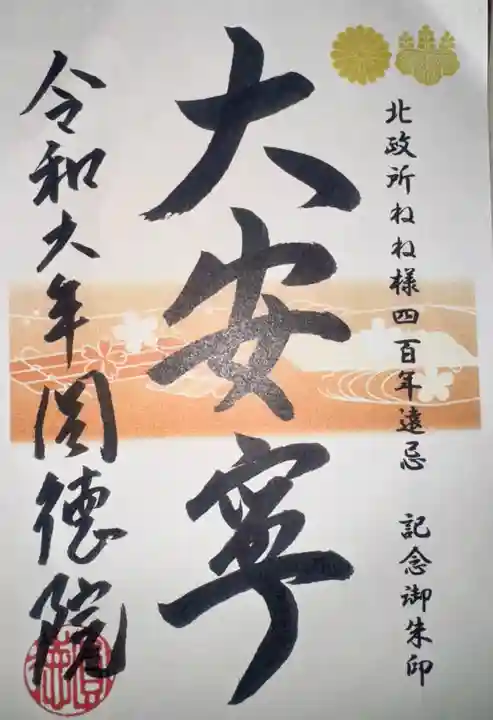 北政所ねね様四百年遠忌　記念御朱印
大安寧
令和六年圓徳院